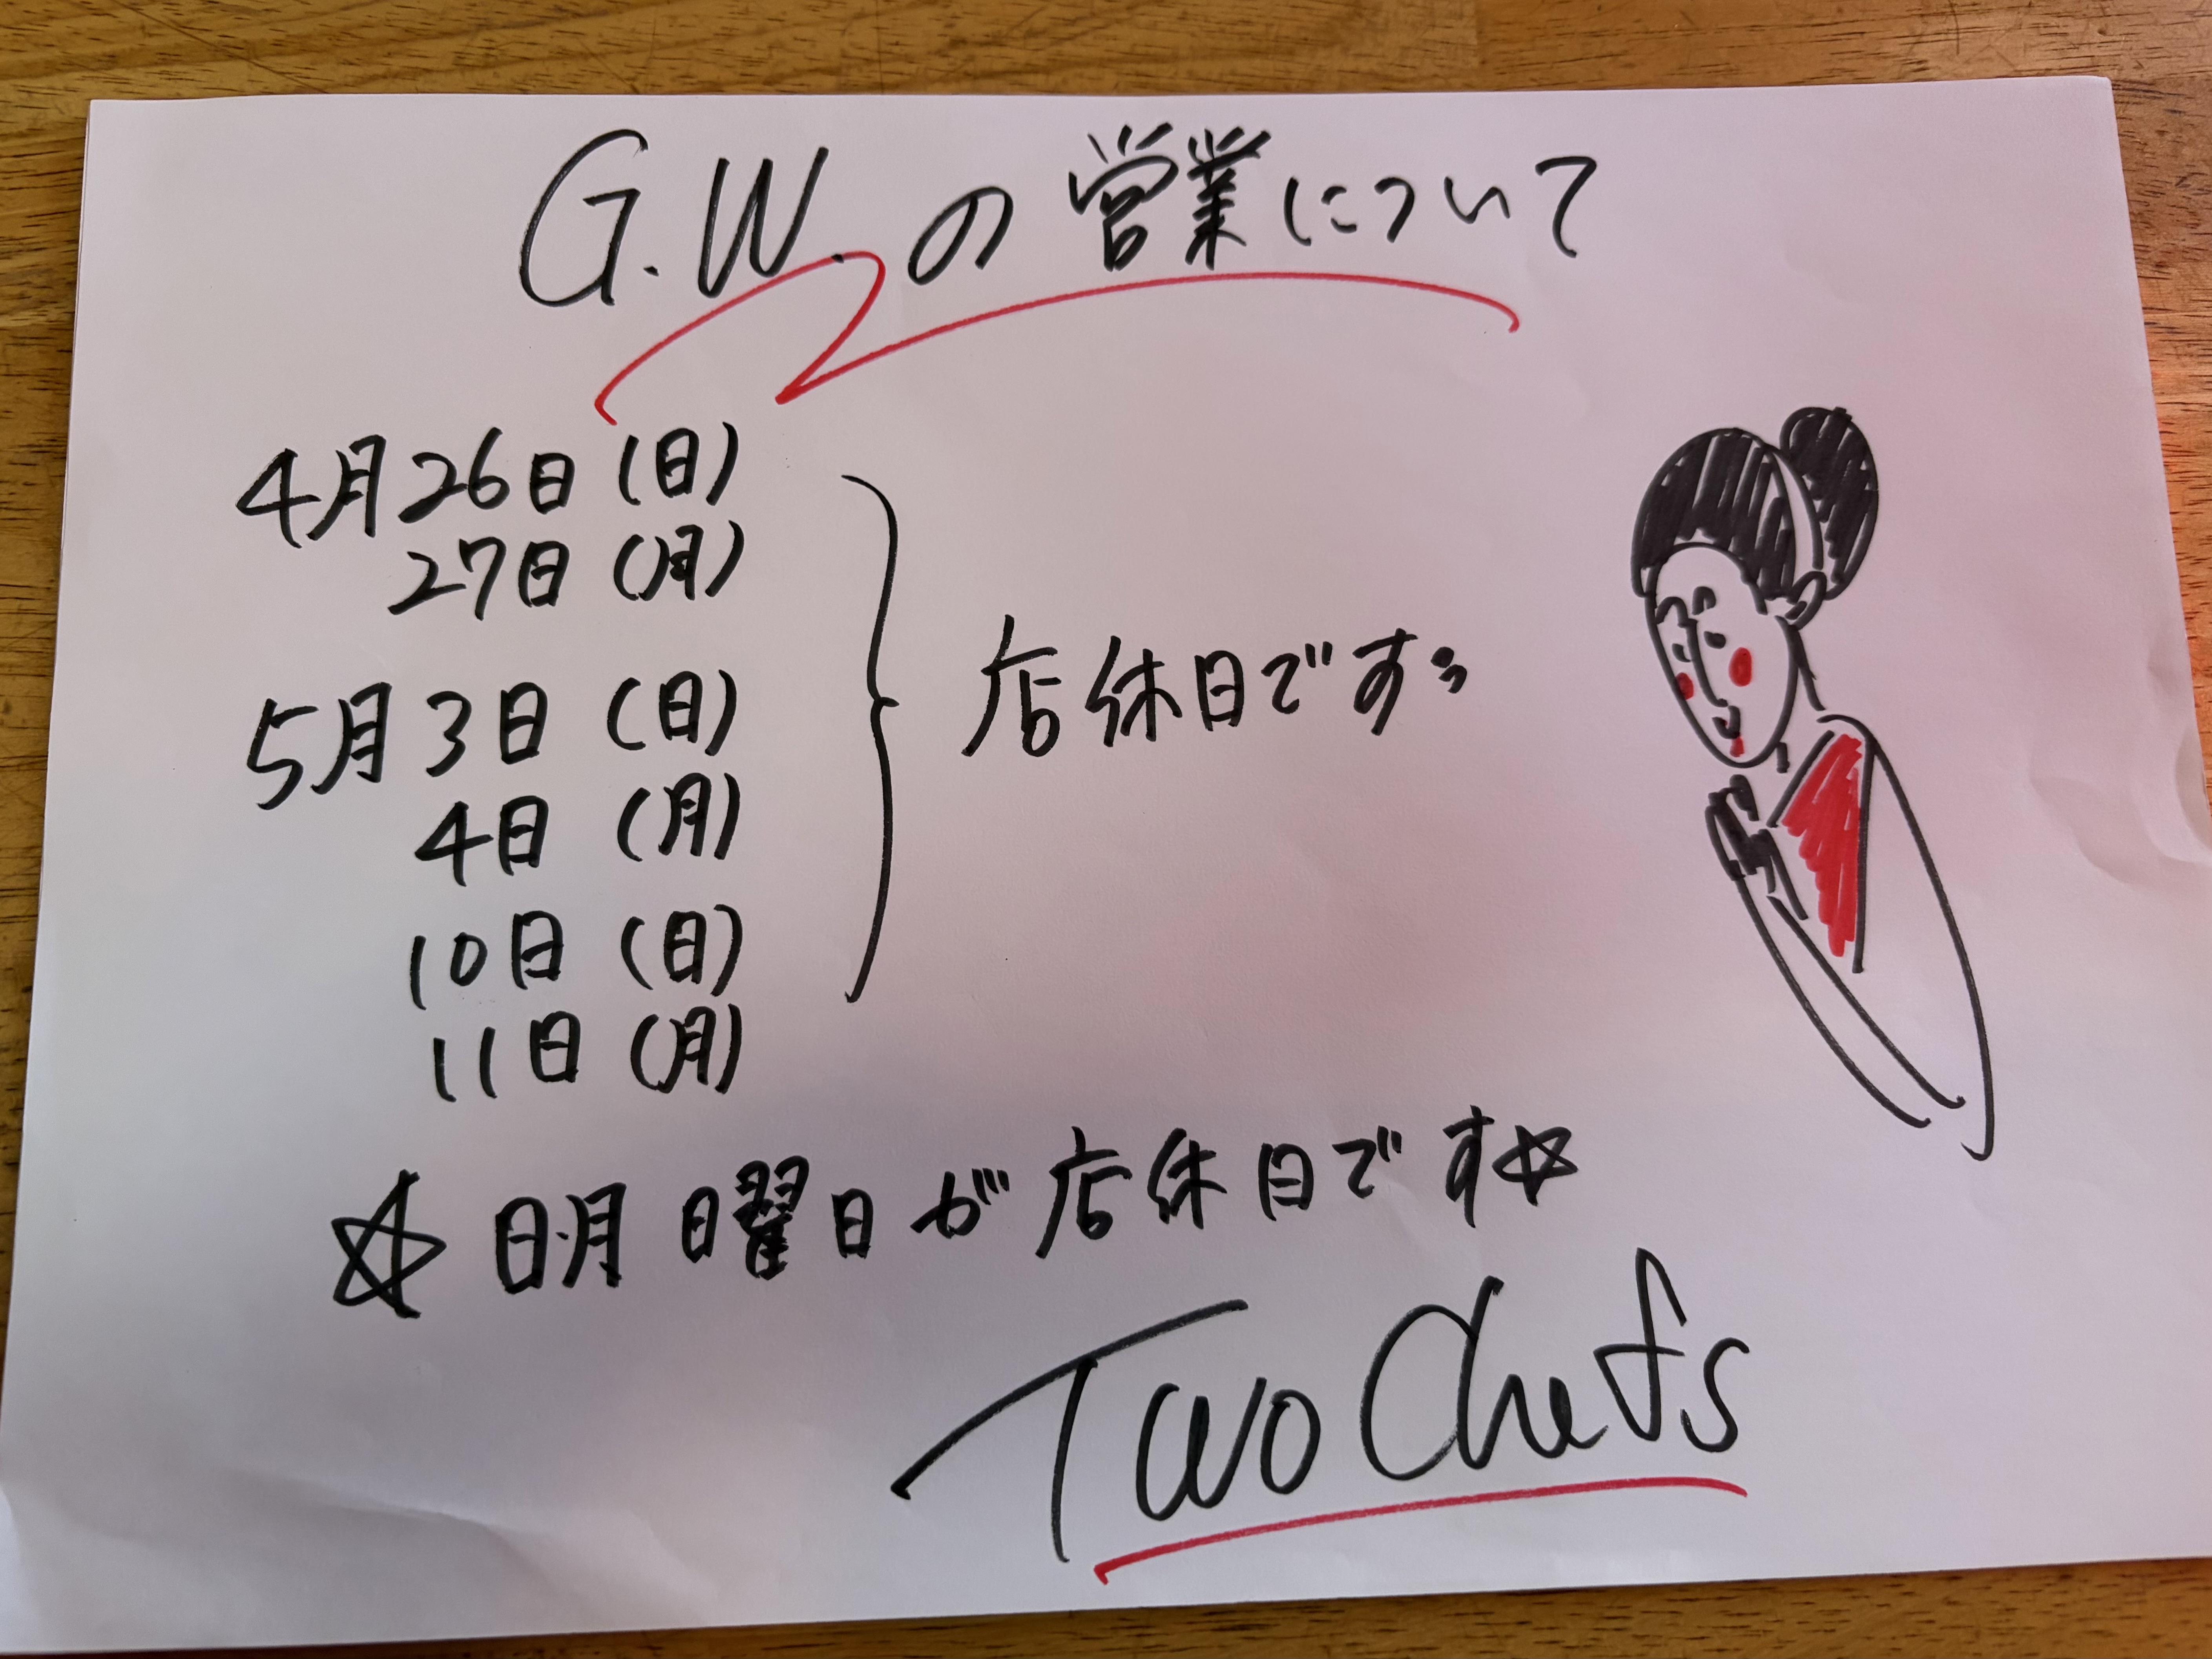 G.W.の営業について
4月26日(日)
27日(月)
5月3日(日)
4日(月)
10日(日)
11日(月)
店休日です
☆日・月曜日が店休日です☆
Two Chefs